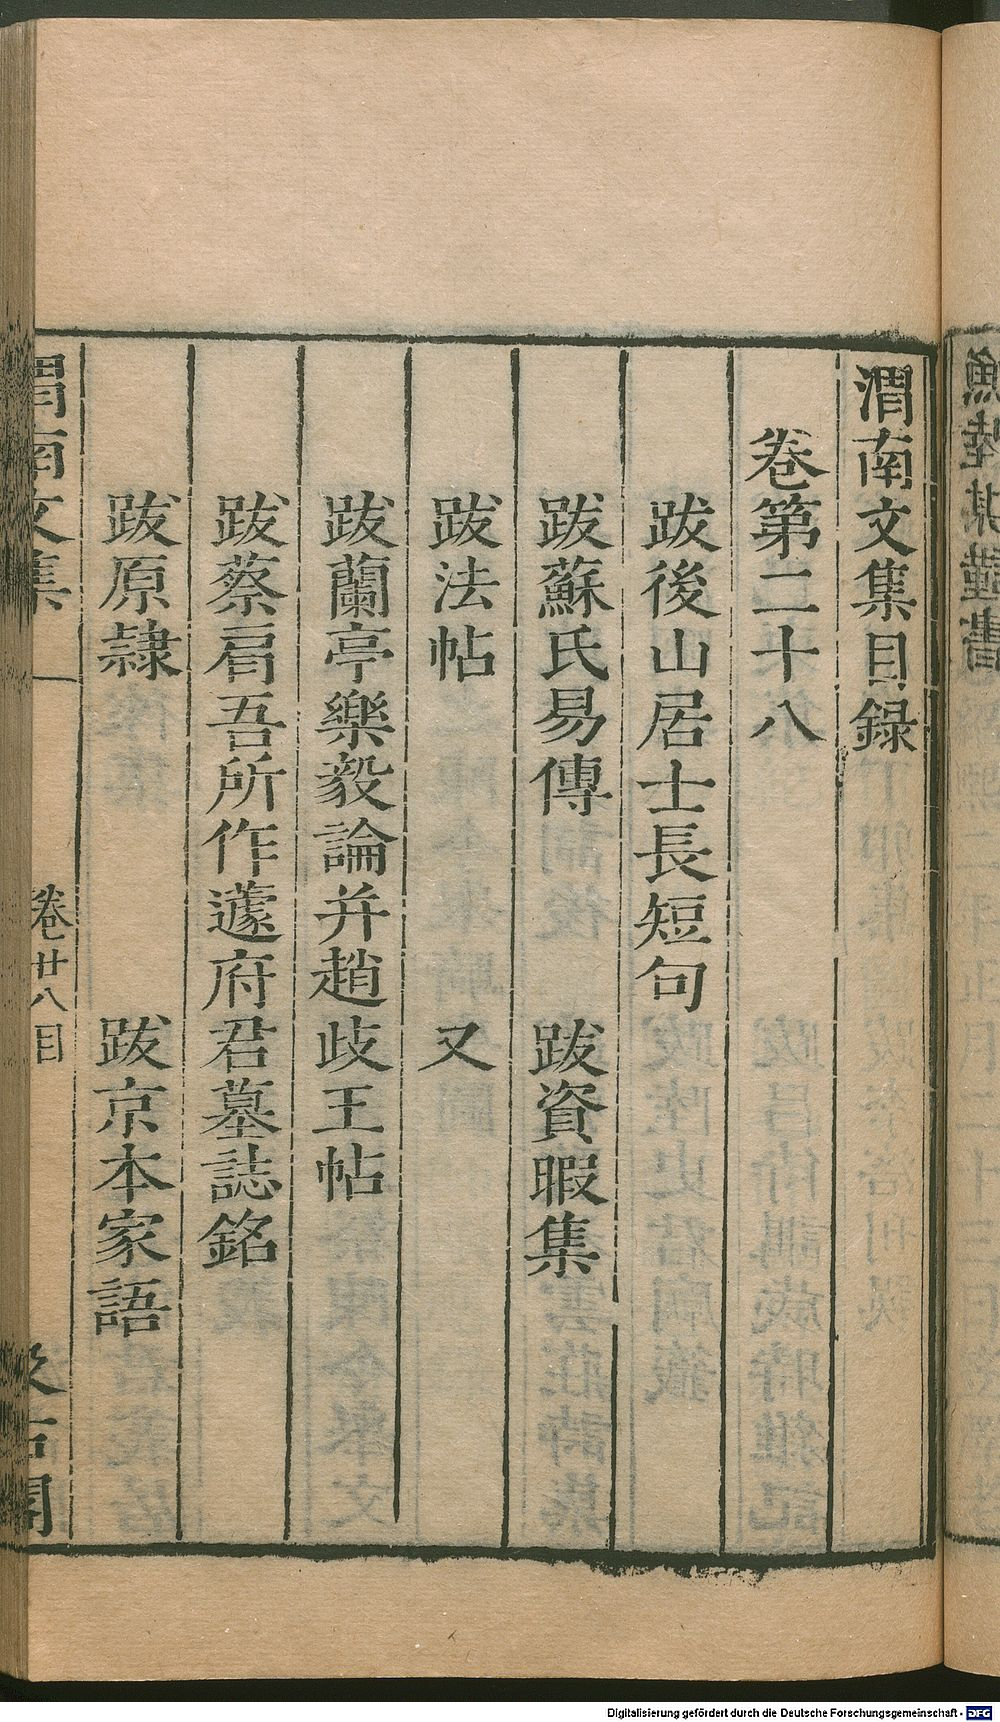 渭南文集目録
卷第二十八
跋後山居士長短句
跋蘇氏易傳 跋資暇集
跋法帖 又
跋蘭亭樂毅論并趙歧王帖
跋蔡肩吾所作蘧府君墓誌銘
跋原隸 跋京本家語
渭南文集 卷廿八目 汲古閣
Digitalisierung gefördert durch die Deutsche Forschungsgemeinschaft - DFG